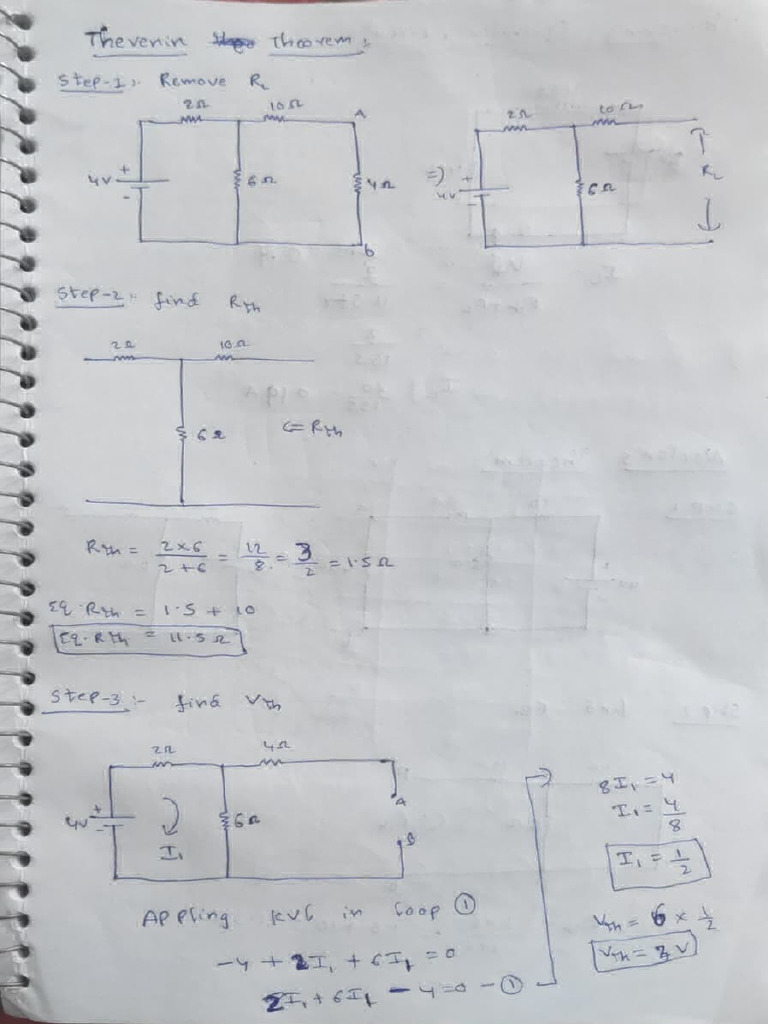 Thevenin Theorem:
Step-1:- Remove RL
2Ω 10Ω A
4V + - 6Ω 4Ω
B
=> 2Ω 10Ω
4V + - 6Ω RL
Step-2:- find Rth
2Ω 10Ω
6Ω <= Rth
Rth = 2×6/2+6 = 12/8 = 3/2 = 1.5Ω
Eq. Rth = 1.5 + 10
Eq. Rth = 11.5Ω
Step-3:- find Vth
2Ω 4Ω
4V + - I1 6Ω A
B
Appling KVL in loop ①
-4 + 2I1 + 6I1 = 0
2I1 + 6I1 - 4 = 0 - ①
8I1 = 4
I1 = 4/8
I1 = 1/2
Vth = 6 × 1/2
Vth = 3V